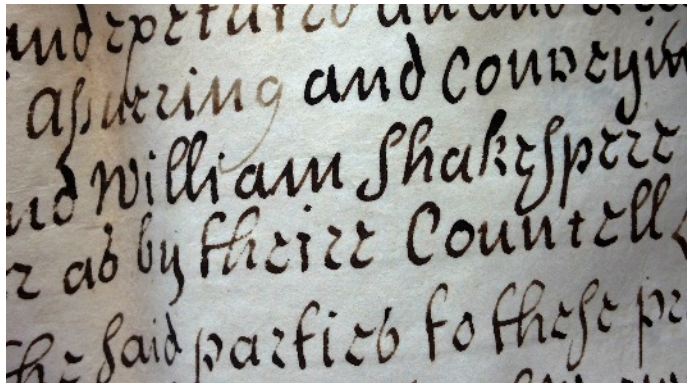 assureing and Conveyin
nd William Shakespere
as by theire Councell
the said parties to these pr